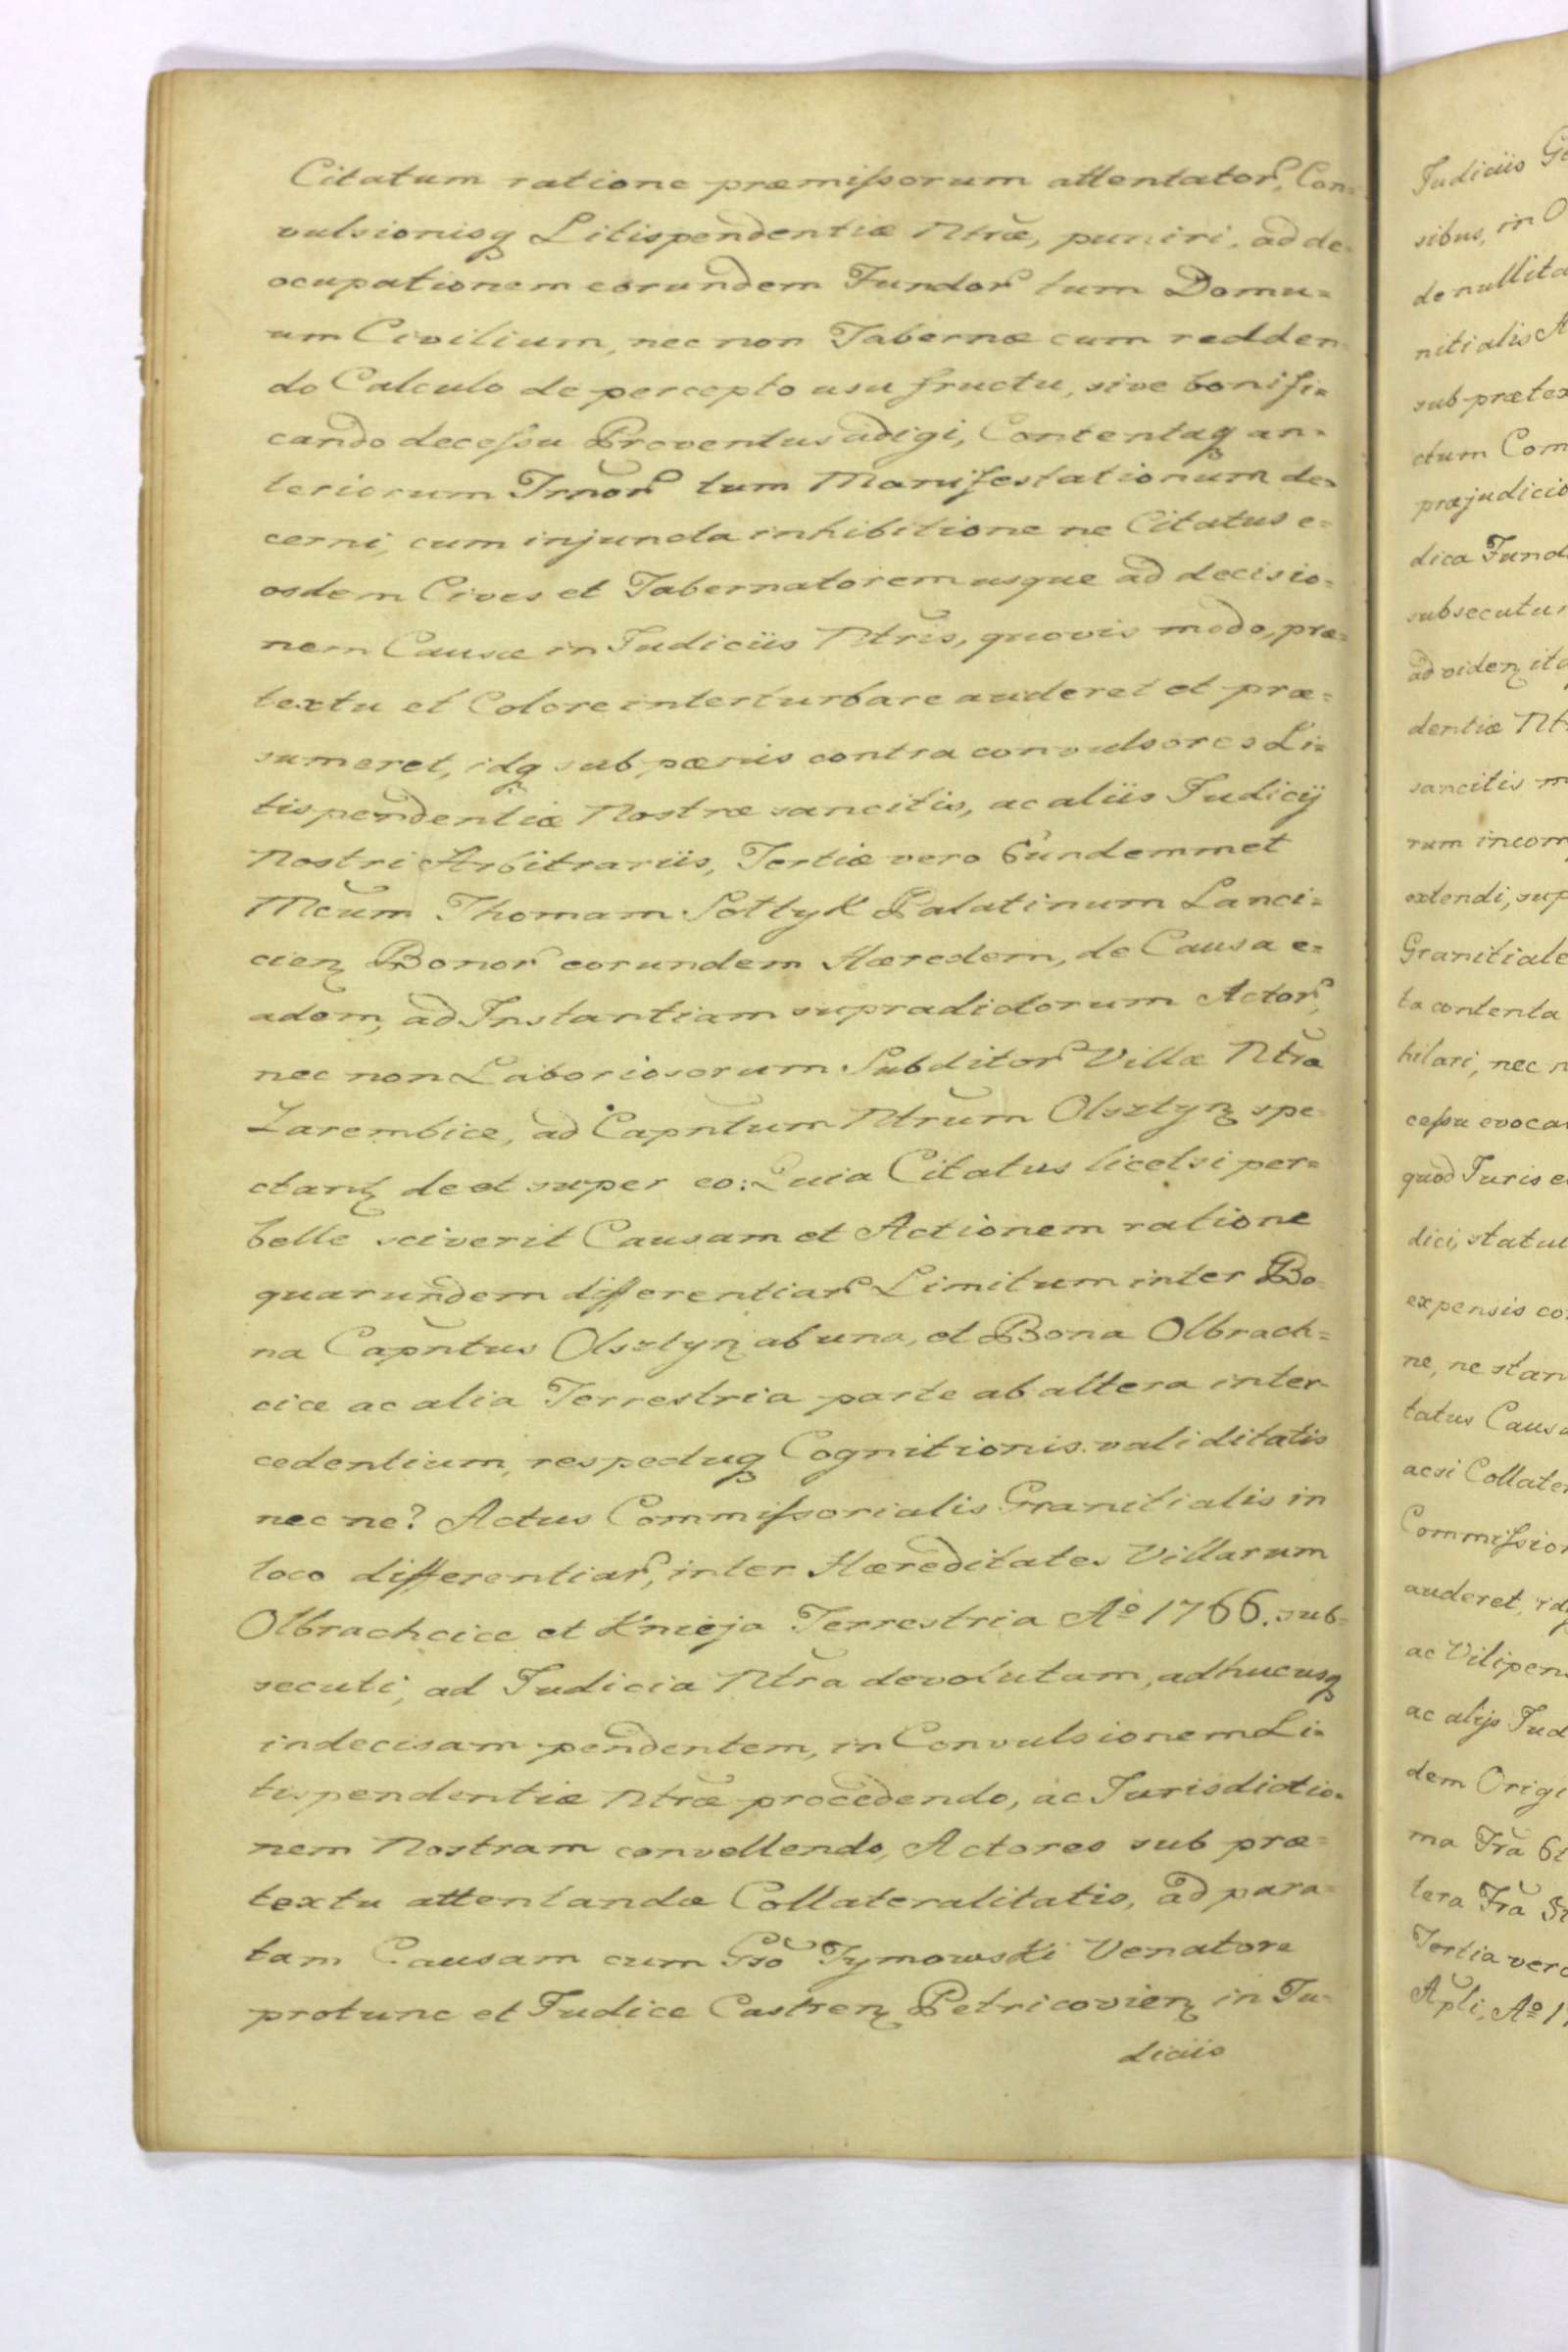 Citatum ratione præmissorum attentator, Con=
vulsionisq Litispendentiæ Ntræ, puniri, ad de=
ocupationem eorundem Fundor tum Domu=
um Civilium, nec non Tabernæ cum redden=
do Calculo de percepto usu fructu, sive bonifi=
cando decessu Proventus adigi, Contentaq an=
teriorum Trnor tum Manifestationum de=
cerni, cum injuncta inhibitione ne Citatus e=
osdem Cives et Tabernatorem usque ad decisio=
nem Causæ in Judiciis Ntris, quovis modo, præ=
textu et Colore interturbare auderet et præ=
sumeret, idq sub pænis contra convulsores Li=
tispendentiæ Nostræ sancitis, ac aliis Judicij
Nostri Arbitrariis, Tertiæ vero Eundemmet
Mcum Thomam Sołtyk Palatinum Lanci=
cien Bonor eorundem Hæredem, de Causa e=
adem, ad Instantiam supradictorum Actor,
nec non Laboriosorum Subditor Villæ Ntra
Zarembice, ad Capntum Ntrum Olsztyn spe
ctant de et super eo: Quia Citatus licet si per=
belle sciverit Causam et Actionem ratione
quarundem differentiar Limitum inter Bo=
na Capntus Olsztyn ab una, et Bona Olbrach=
cice ac alia Terrestria parte ab altera inter=
cedentium, respectuq Cognitionis validitatis
nec ne? Actus Commissorialis Granitialis in
loco differentiar, inter Hæreditates Villarum
Olbrachcice et Knieja Terrestria Aº 1766. sub=
secuti, ad Judicia Ntra devolutam, adhucusq
indecisam pendentem, in Convulsionem Li=
tispendentiæ Ntræ procedendo, ac Jurisdictio=
nem Nostram convellendo, Actores sub præ=
textu attentandæ Collateralitatis, ad para=
tam Causam cum Gso Tymowski Venatore
protunc et Judice Castren Petricovien in Ju=
diciis
Judiciis
sibus, in O
de nullita
nitialis A
sub prætex
ctum Com
præjudicio
dica Fund
subsecutu
ad viden ita
dentiæ Nt
sancitis m
rum incom
extendi, sup
Granitiale
ta contenta
hilari, nec n
cessu evoca
quod Juris e
dici, statu
expensis co
ne, ne stan
tatus Causa
acsi Collate
Commission
auderet, idq
ac Vilipen
ac alijs Jud
dem Origi
ma Fra
tera Fra
Tertia vero
Apli, Aº 1